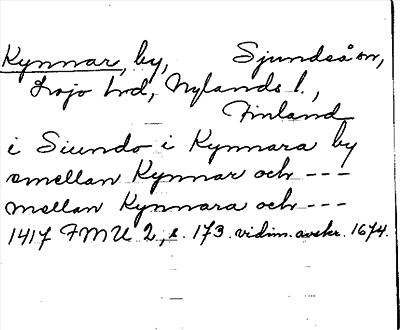 Kynnar, by, Sjundeå sn,
Lojo hd, Nylands l.,
Finland
i Siundo i Kynnara by
emellan Kynnar och ---
mellan Kynnara och ---
1417 FMU 2, s. 173. vidim. avskr. 1674.